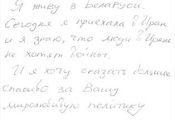 Я живу в Беларуси.
Сегодня я приехала в Иран
и я знаю, что люди в Иране
не хотят войны.
И я хочу сказать большое
спасибо за Вашу
миролюбивую политику